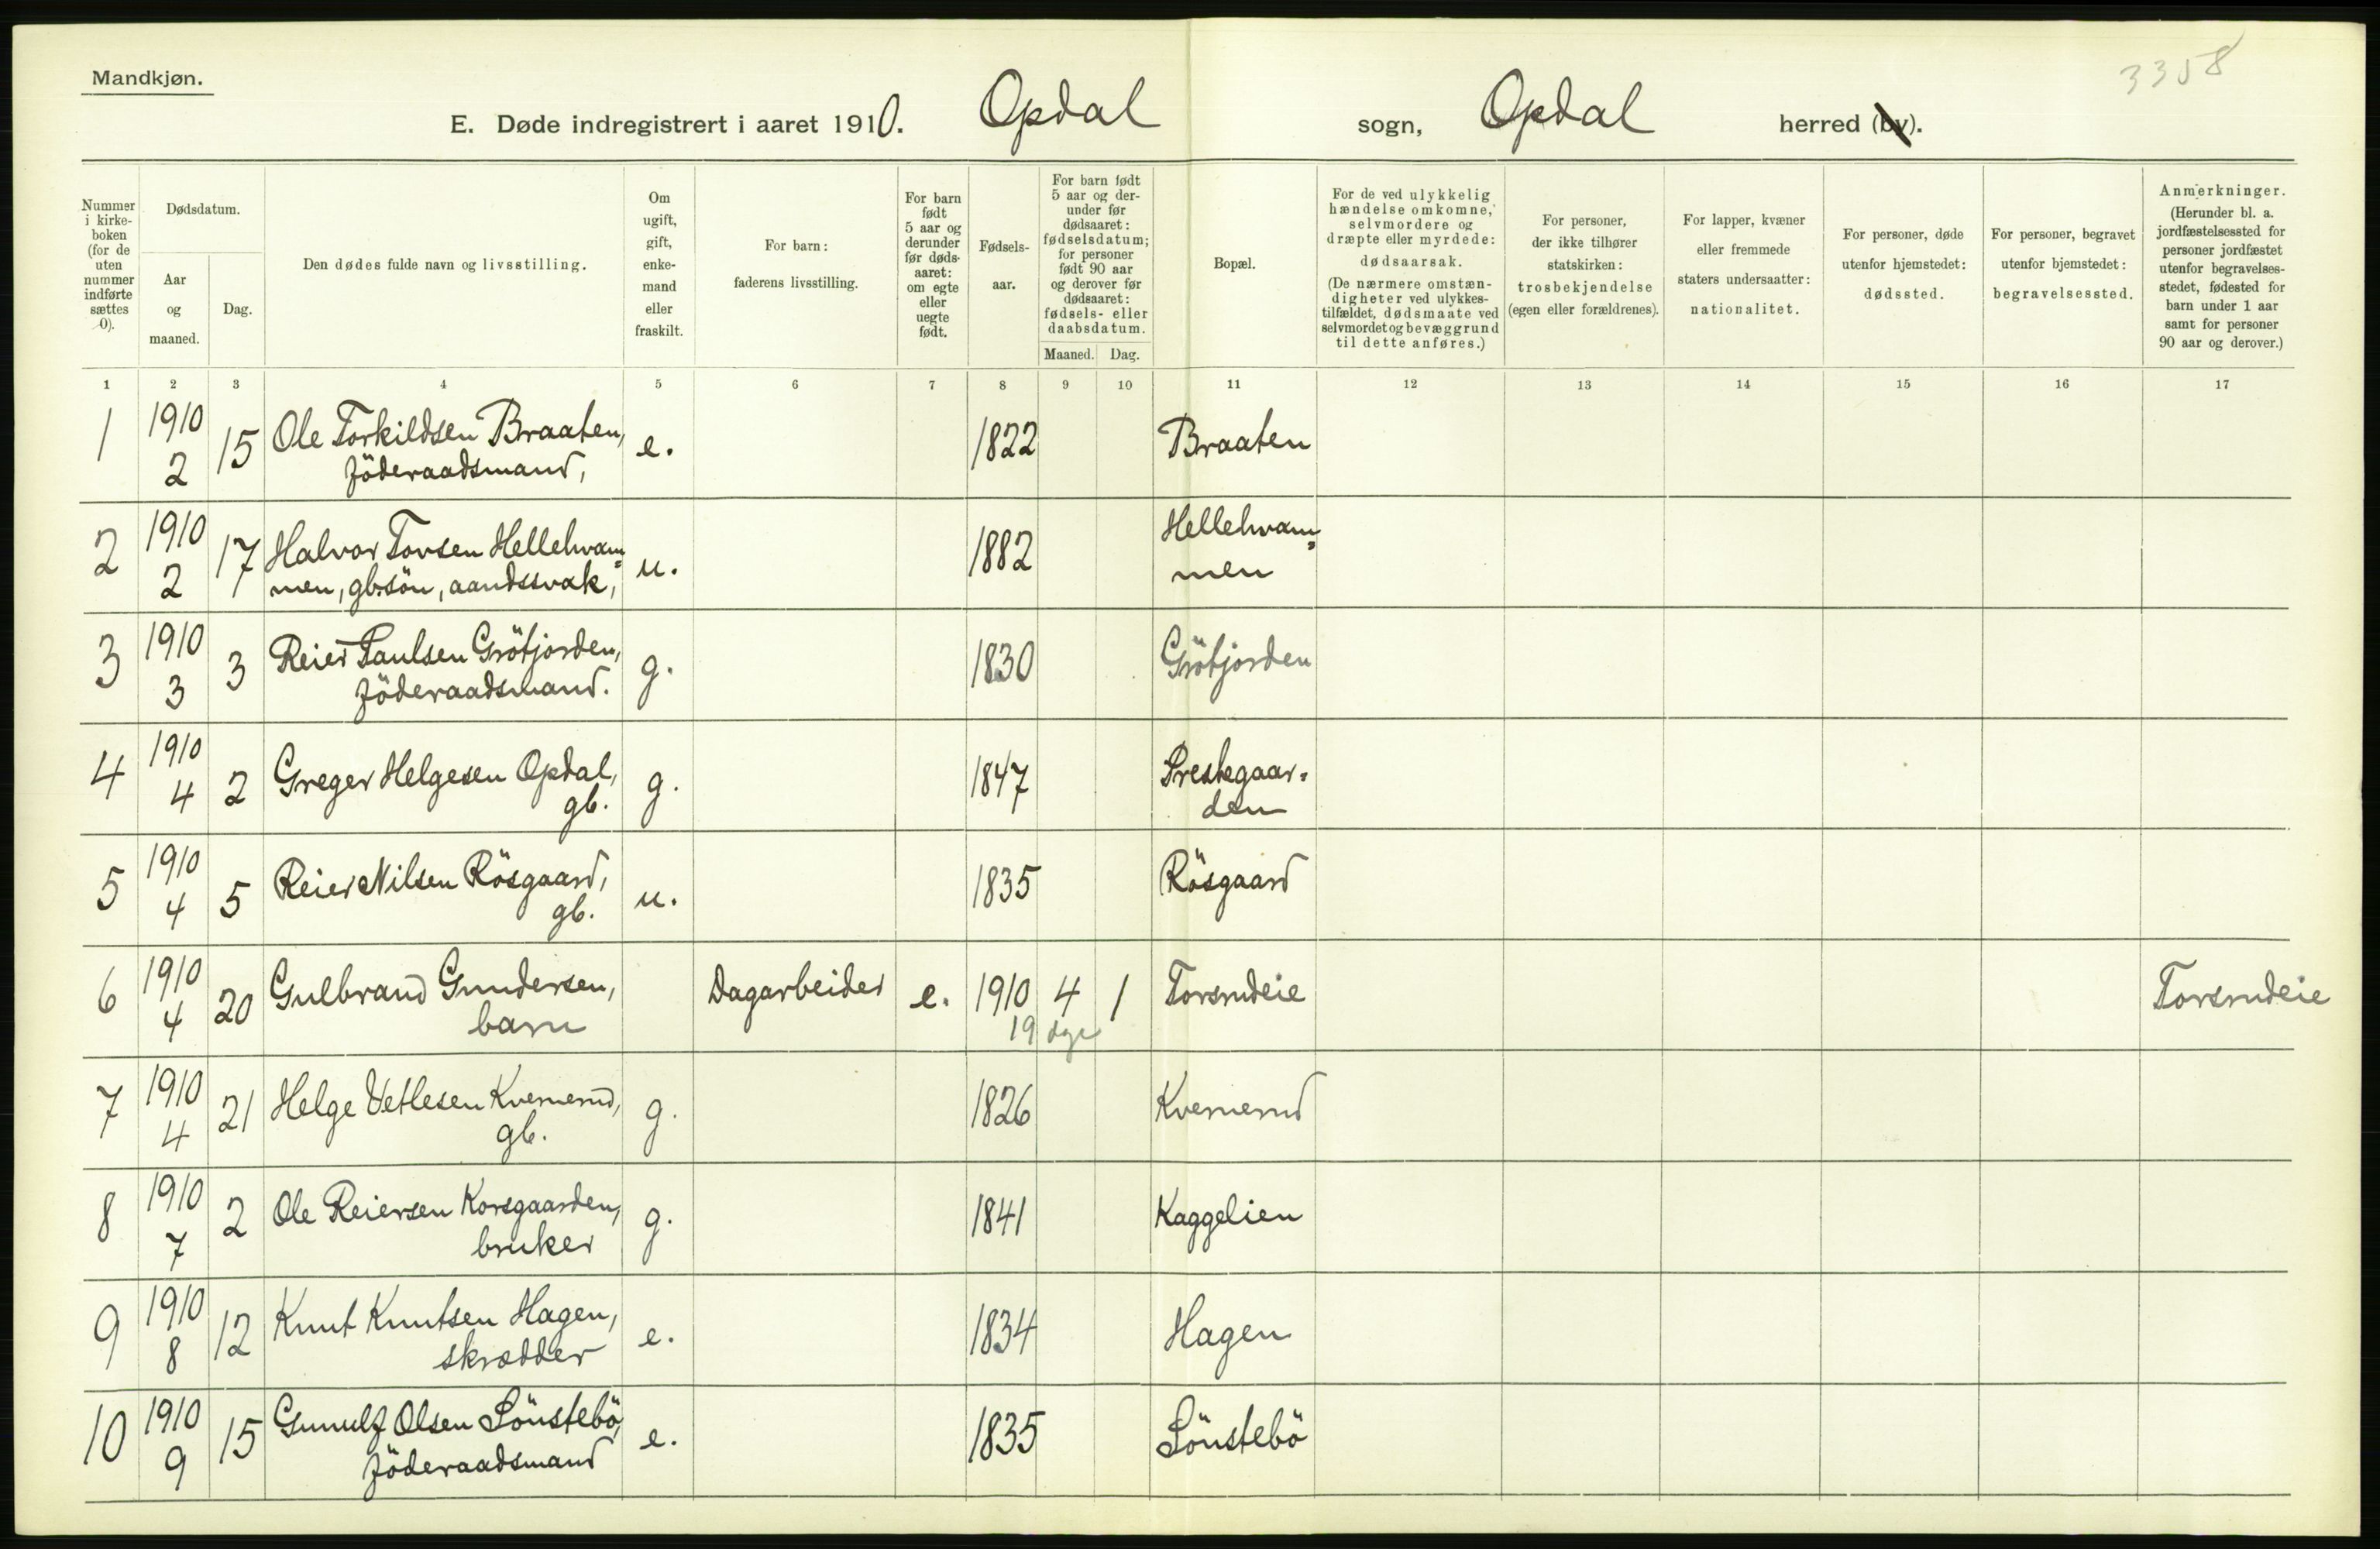 Mandkjøn.
3358
E. Døde indregistrert i aaret 1910. Opdal sogn, Opdal herred (by).
Nummer i kirke-boken (for de uten nummer indførte sættes 0).
Dødsdatum.
Aar og maaned.
Dag.
Den dødes fulde navn og livsstilling.
Om ugift, gift, enke-mand eller fraskilt.
For barn: faderens livsstilling.
For barn født 5 aar og derunder før døds-aaret: om egte eller uegte født.
Fødsels-aar.
For barn født 5 aar og der-under før dødsaaret: fødselsdatum; for personer født 90 aar og derover før dødsaaret: fødsels- eller daabsdatum.
Maaned. Dag.
Bopæl.
For de ved ulykkelig hændelse omkomne, selvmordere og dræpte eller myrdede: dødsaarsak. (De nærmere omstæn-digheter ved ulykkes-tilfældet, dødsmaate ved selvmordet og bevæggrund til dette anføres.)
For personer, der ikke tilhører statskirken: trosbekjendelse (egen eller forældrenes).
For lapper, kvæner eller fremmede staters undersaatter: nationalitet.
For personer, døde utenfor hjemstedet: dødssted.
For personer, begravet utenfor bjemstedet: begravelsessted.
Anmerkninger. (Herunder bl. a. jordfæstelsessted for personer jordfæstet utenfor begravelses-stedet, fødested for barn under 1 aar samt for personer 90 aar og derover.)
1 2 3 4 5 6 7 8 9 10 11 12 13 14 15 16 17
1 1910 2 15 Ole Torkildsen Braaten, e. 1822 Braaten
föderaadsmand,
2 1910 2 17 Halvor Torsen Hellehvam= u. 1882 Hellehvam=
men, gbsön, aandssvak, men
3 1910 3 3 Reier Paulsen Grötjorden, g. 1830 Grötjorden
föderaadsmand.
4 1910 4 2 Greger Helgesen Opdal, g. 1847 Prestegaar=
gb. den
5 1910 4 5 Reier Nilsen Rösgaard, u. 1835 Rösgaard
gb.
6 1910 4 20 Gulbrand Gundersen, Dagarbeider e. 1910 4 1 Torsrudeie Torsrudeie
barn 19 dge
7 1910 4 21 Helge Vetlesen Kvernerud, g. 1826 Kvernerud
gb.
8 1910 7 2 Ole Reiersen Korsgaarden, g. 1841 Kaggelien
bruker
9 1910 8 12 Knut Knutsen Hagen, e. 1834 Hagen
skrædder
10 1910 9 15 Gunulf Olsen Lönstebö, e. 1835 Lönstebö
föderaadsmand